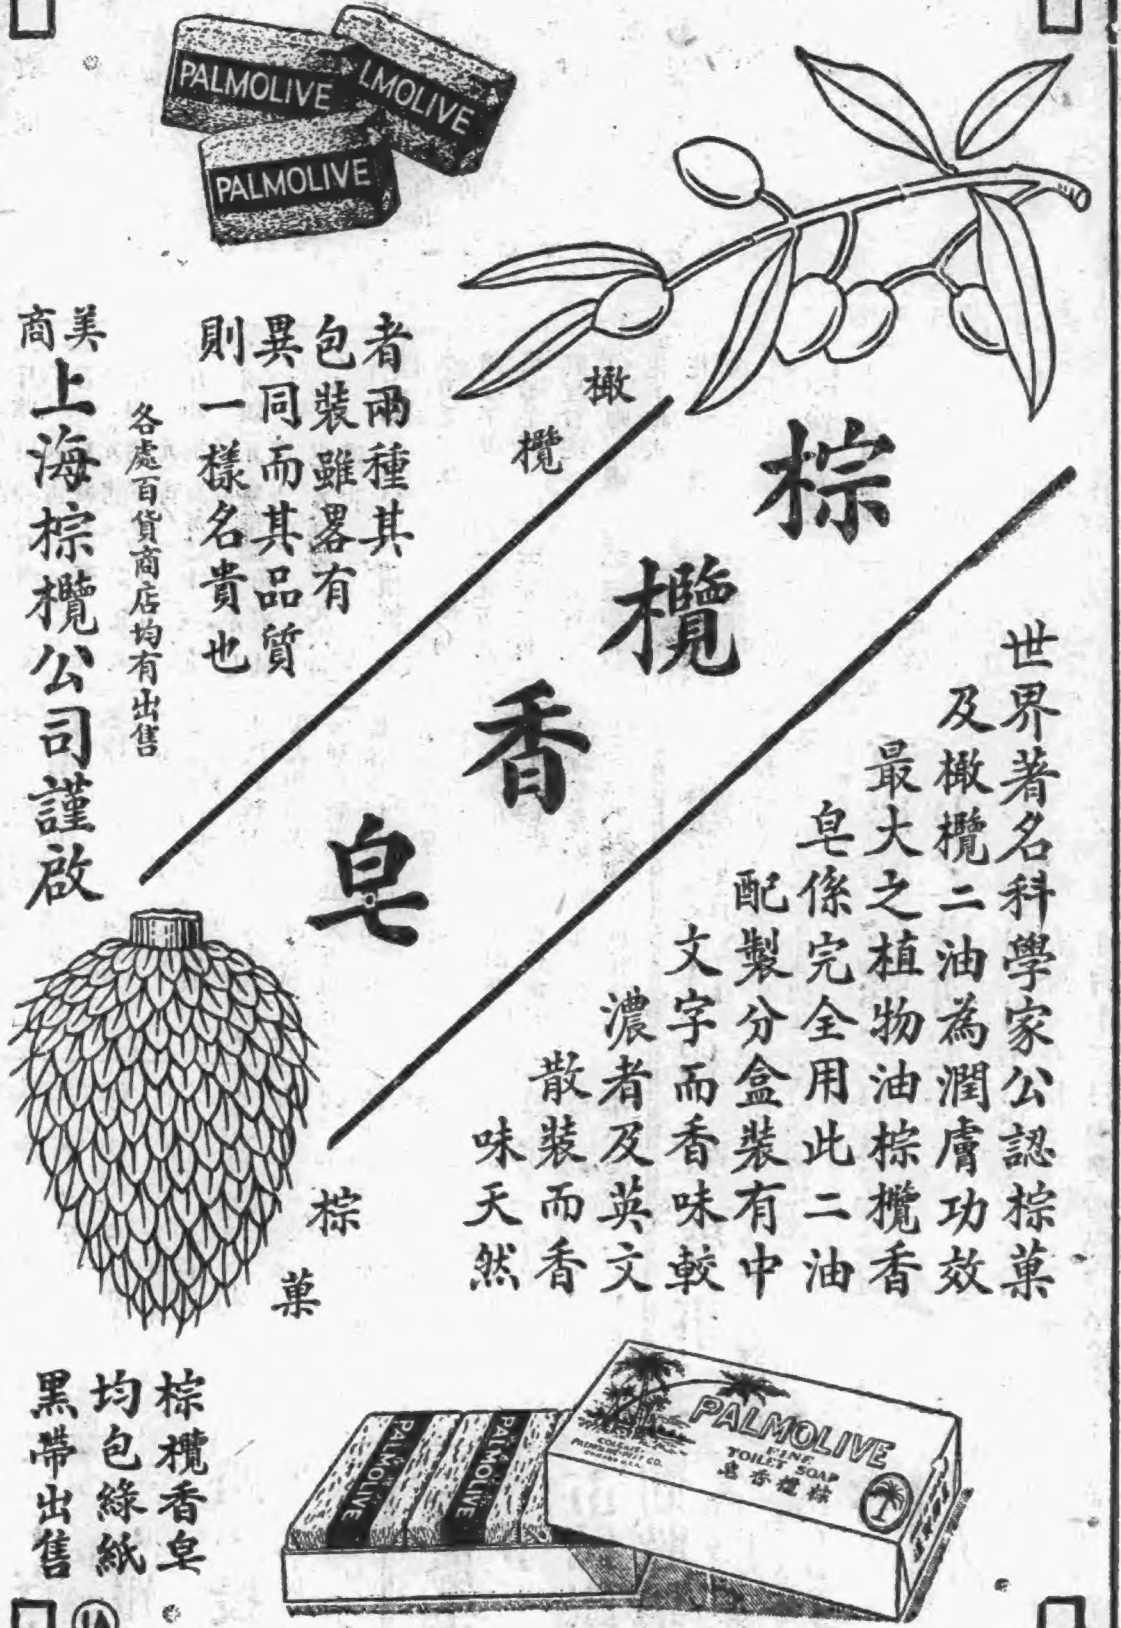 PALMOLIVE
LMOLIVE
PALMOLIVE
橄欖
棕欖香皂
棕菓
世界著名科學家公認棕菓
及橄欖二油為潤膚功效
最大之植物油棕欖香
皂係完全用此二油
配製分盒裝有中
文字而香味較
濃者及英文
散裝而香
味天然
者兩種其
包裝雖畧有
異同而其品質
則一樣名貴也
各處百貨商店均有出售
美商
上海棕欖公司謹啟
棕欖香皂
均包綠紙
黑帶出售
PALMOLIVE
PALMOLIVE
PALMOLIVE
FINE
TOILET SOAP
皂香欖棕
COLGATE-
PALMOLIVE-PEET CO.